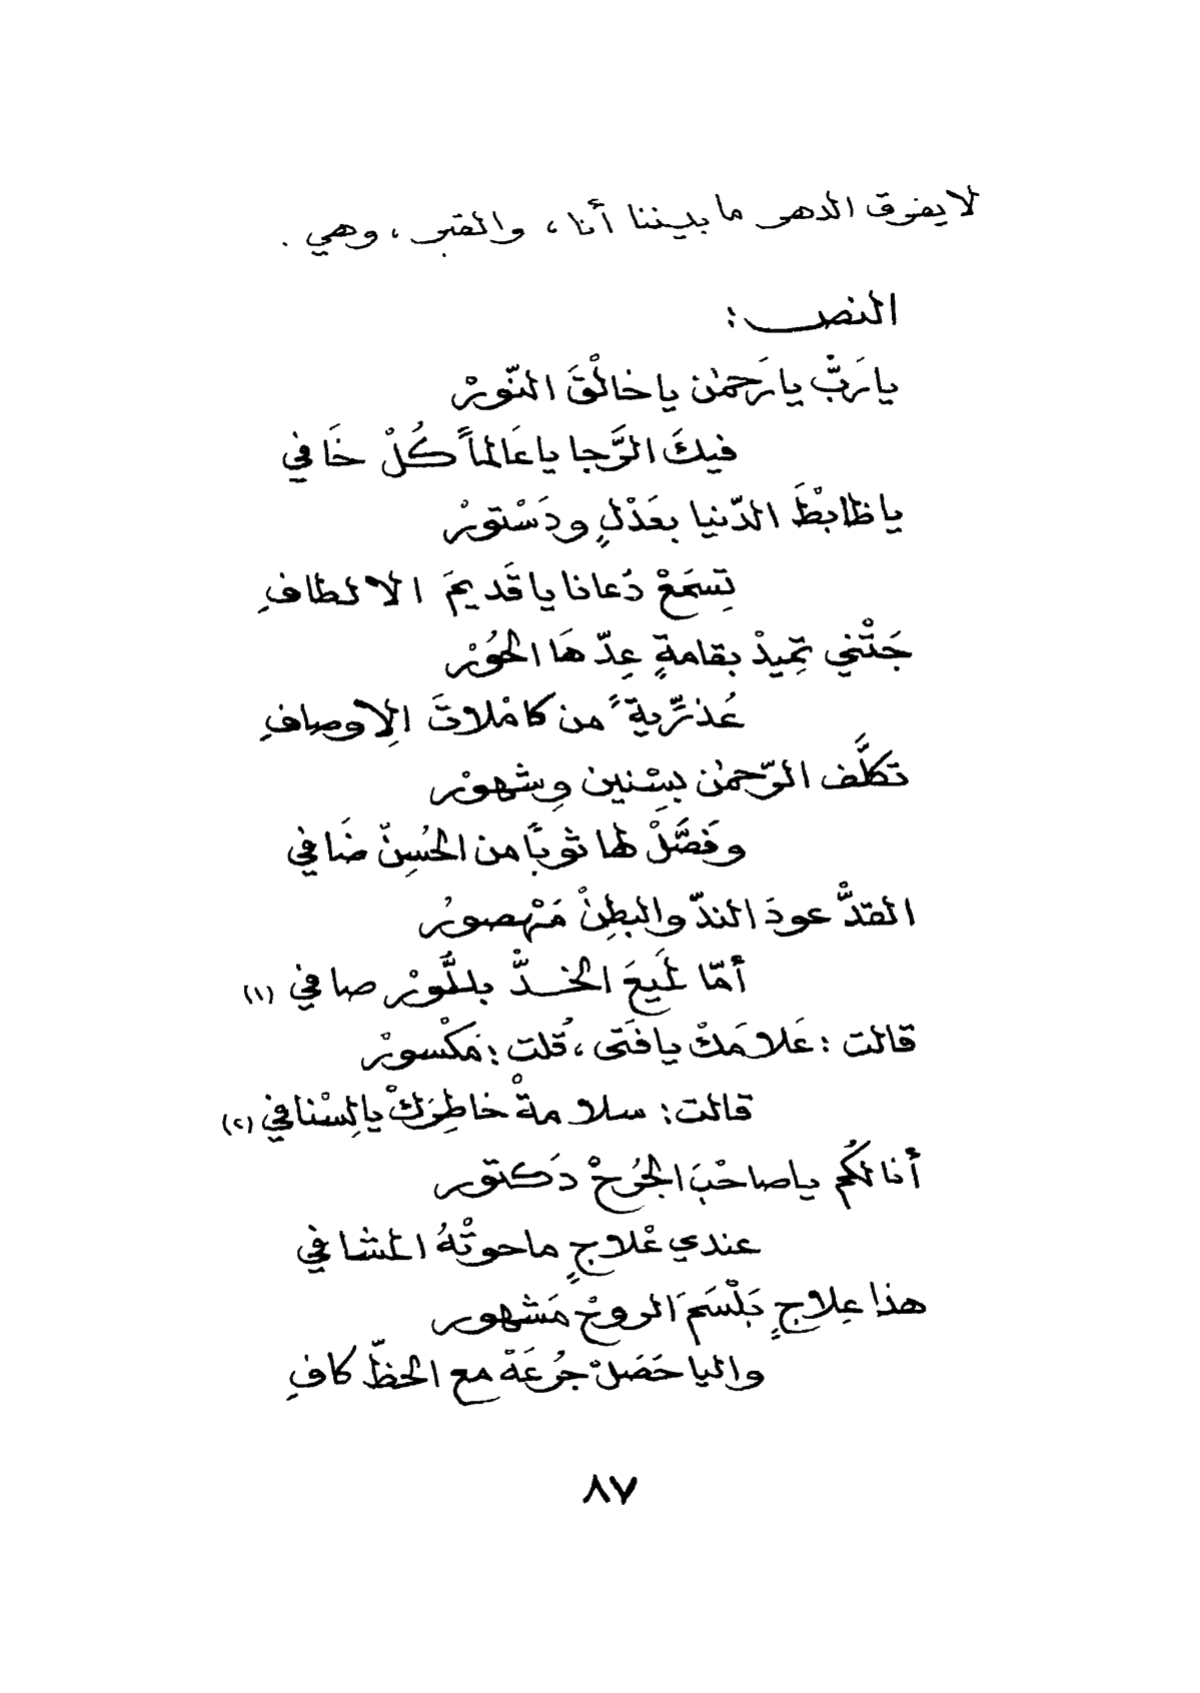 لا يفرق الدهر ما بيننا أنا ، والقبر ، وهي .
النص :
يا رَبّْ يا رَحمٰن يا خالْقَ النّورْ
فيكَ الرَّجا يا عَالماً كُلْ خَافي
يا ظابْطَ الدّنيا بعَدْلٍ ودَسْتورْ
تِسمَعْ دُعانا يا قَديمَ الالطافِ
جَتْني تِميدْ بقامةٍ عِدّ هَا الحُورْ
عُذرِّيةً من كامْلاتَ الِاوصافِ
تكلَّف الرّحمٰن بسِنين وِشهورْ
وفَصَّلْ لها ثوبًا من الحُسِنّ ضَافي
القدّْ عودَ الندّ والبطِنْ مَهْصورْ
أمّا لمَيعَ الخدّْ بللَّورْ صافي (١)
قالت : عَلامَكْ يا فَتى ، قُلت : مَكْسورْ
قالت : سلامةْ خاطِرَكْ يالِسْنافي (٢)
أنا لكُم يا صاحْبَ الجُرحْ دَكتور
عندي عْلاجٍ ما حوتْهُ المشافي
هذا عِلاجٍ بَلْسَمَ الروحْ مَشهور
واليا حَصَلْ جُرعَهْ مع الحظّ كافِ
٨٧